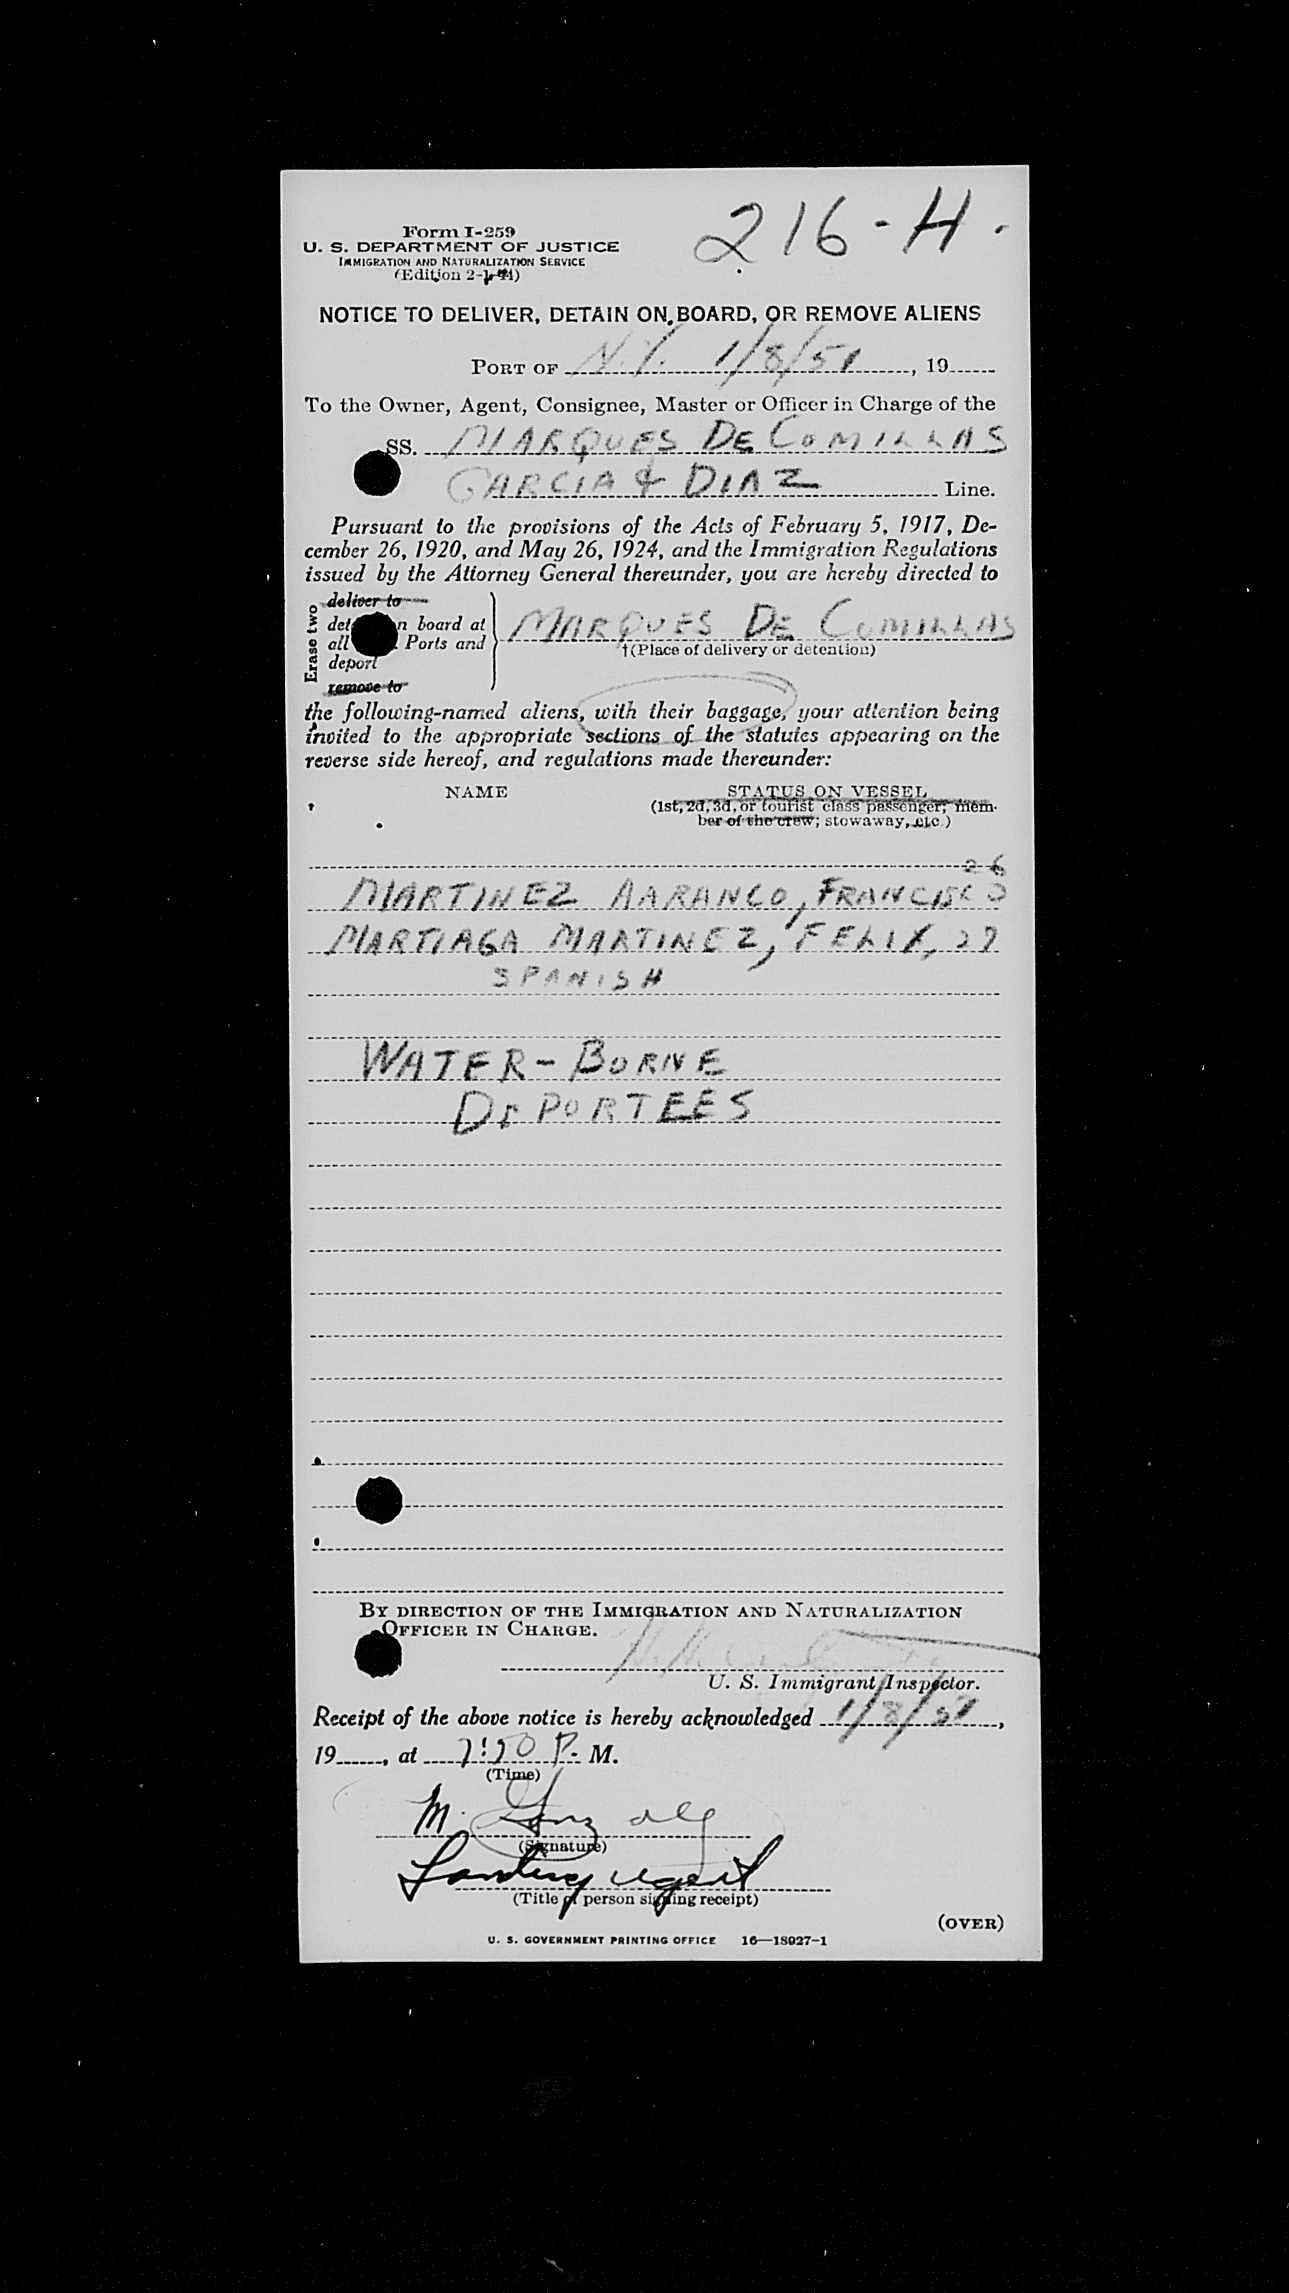 216-H.
Form I-259
U. S. DEPARTMENT OF JUSTICE
IMMIGRATION AND NATURALIZATION SERVICE
(Edition 2-1-44)
NOTICE TO DELIVER, DETAIN ON BOARD, OR REMOVE ALIENS
PORT OF N.Y. 1/8/51, 19
To the Owner, Agent, Consignee, Master or Officer in Charge of the
SS. MARQUES DE COMILLAS
GARCIA & DIAZ Line.
Pursuant to the provisions of the Acts of February 5, 1917, De-
cember 26, 1920, and May 26, 1924, and the Immigration Regulations
issued by the Attorney General thereunder, you are hereby directed to
Erase two
deliver to
n board at
all Ports and
deport
remove to
MARQUES DE COMILLAS
†(Place of delivery or detention)
the following-named aliens, with their baggage, your attention being
invited to the appropriate sections of the statutes appearing on the
reverse side hereof, and regulations made thereunder:
NAME STATUS ON VESSEL
(1st, 2d, 3d, or tourist class passenger; mem-
ber of the crew; stowaway, etc.)
26
MARTINEZ AARANCO, FRANCISCO
MARTIAGA MARTINEZ, FELIX, 27
SPANISH
WATER-BORNE
DEPORTEES
BY DIRECTION OF THE IMMIGRATION AND NATURALIZATION
OFFICER IN CHARGE.
U. S. Immigrant Inspector.
Receipt of the above notice is hereby acknowledged 1/8/51,
19, at P. M.
(Time)
M.
(Signature)
Landing agent
(Title of person signing receipt)
(OVER)
U. S. GOVERNMENT PRINTING OFFICE 16—18927-1